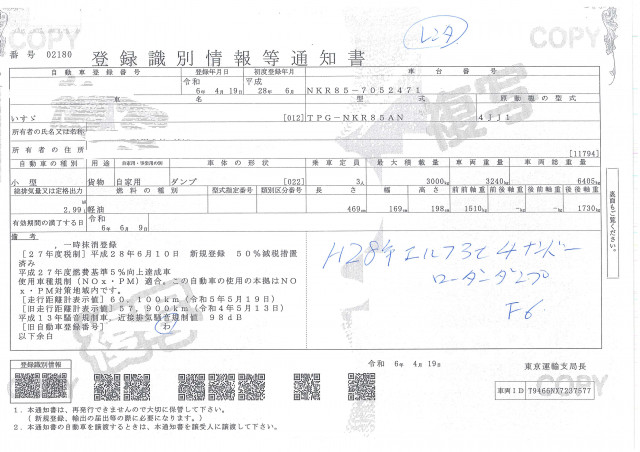 COPY
COPY
レンタ
番号 02180
登録識別情報等通知書
自動車登録番号 登録年月日 初度登録年月 車台番号
令和 平成
6年 4月19日 28年 6月 NKR85-7052471
車名 型式 原動機の型式
いすゞ [012] TPG-NKR85AN 4jj1
所有者の氏名又は名称
所有者の住所
[11794]
自動車の種別 用途 自家用・事業用の別 車体の形状 乗車定員 最大積載量 車両重量 車両総重量
小型 貨物 自家用 ダンプ [022] 3人 3000kg 3240kg 6405kg
総排気量又は定格出力 燃料の種類 型式指定番号 類別区分番号 長さ 幅 高さ 前前軸重 前後軸重 後前軸重 後後軸重
2.99L 軽油 469cm 169cm 198cm 1510kg -kg -kg 1730kg
有効期間の満了する日 令和
6年 6月 9日
備考
，一時抹消登録
[27年度税制] 平成28年6月10日 新規登録 50%減税措置
済み
平成27年度燃費基準5%向上達成車
使用車種規制（NOx・PM）適合。この自動車の使用の本拠はNO
x・PM対策地域内です。
[走行距離計表示値] 60,100km（令和5年5月19日）
[旧走行距離計表示値] 57,900km（令和4年5月13日）
平成13年騒音規制車、近接排気騒音規制値 98dB
[旧自動車登録番号] わ
以下余白
H28年エルフ3t4ナンバー
ローダンダンプ
F6
裏面もご覧ください。
複写
複写
登録識別情報
令和 6年 4月 19日
東京運輸支局長
車両ID 79466NX7237577
1．本通知書は、再発行できませんので大切に保管して下さい。
（新規登録、輸出の届出等の際に必要になります。）
2．本通知書の自動車を譲渡するときは、本通知書を譲受人に譲渡して下さい。
COPY
COPY